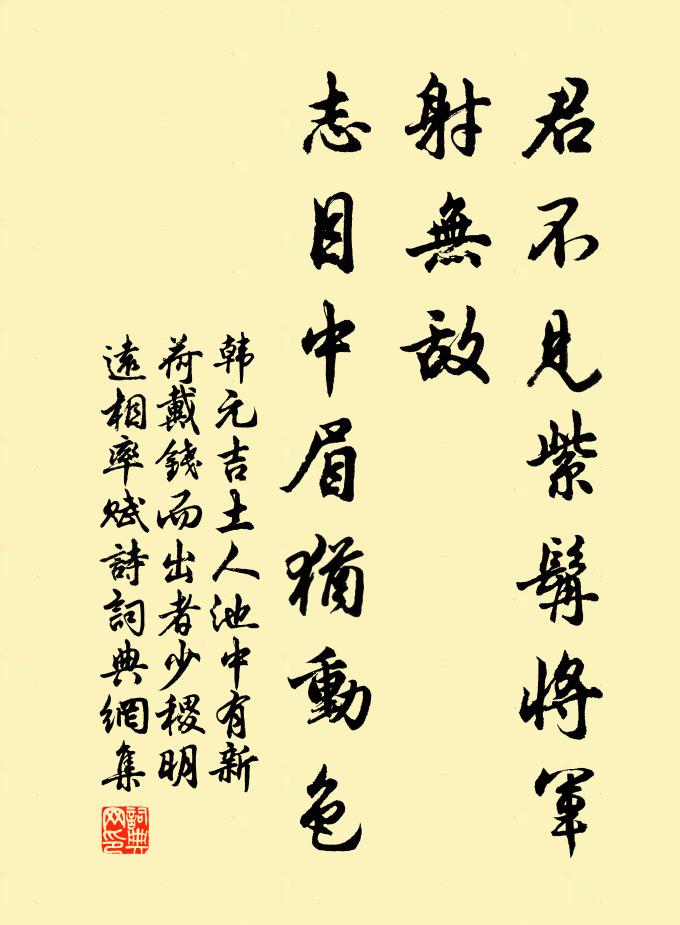 君不見紫髯將軍
射無敌
志目中眉猶動色
韩元吉土人池中有新
荷戴錢而出者少稷明
遠相率赋詩詞典網集
詞典
网印